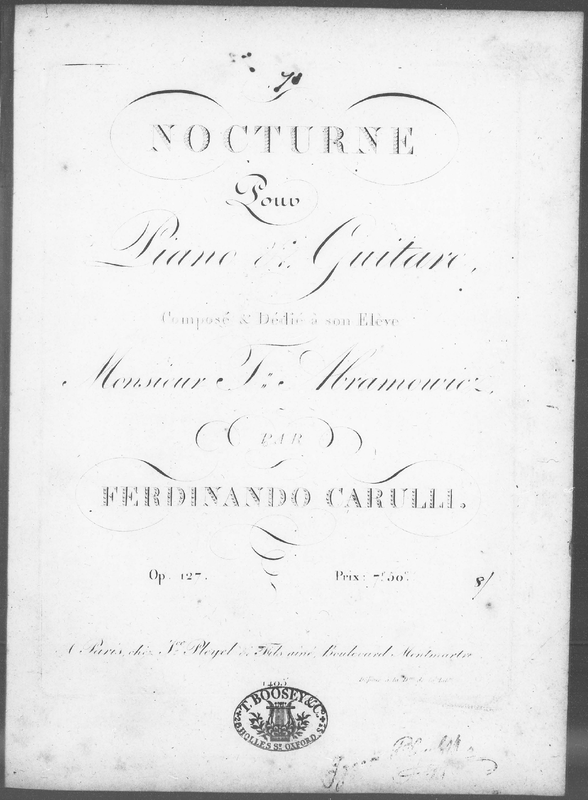 NOCTURNE
Pour
Piano & Guitare,
Composé & Dédié à son Elève
Monsieur Abramowicz,
PAR
FERDINANDO CARULLI.
Op. 127. Prix: 7f 50c. 8/
A Paris, chez Ice Pleyel & Fils ainé, Boulevard Montmartre
T. BOOSEY & Co.
HOLLES St. OXFORD St.